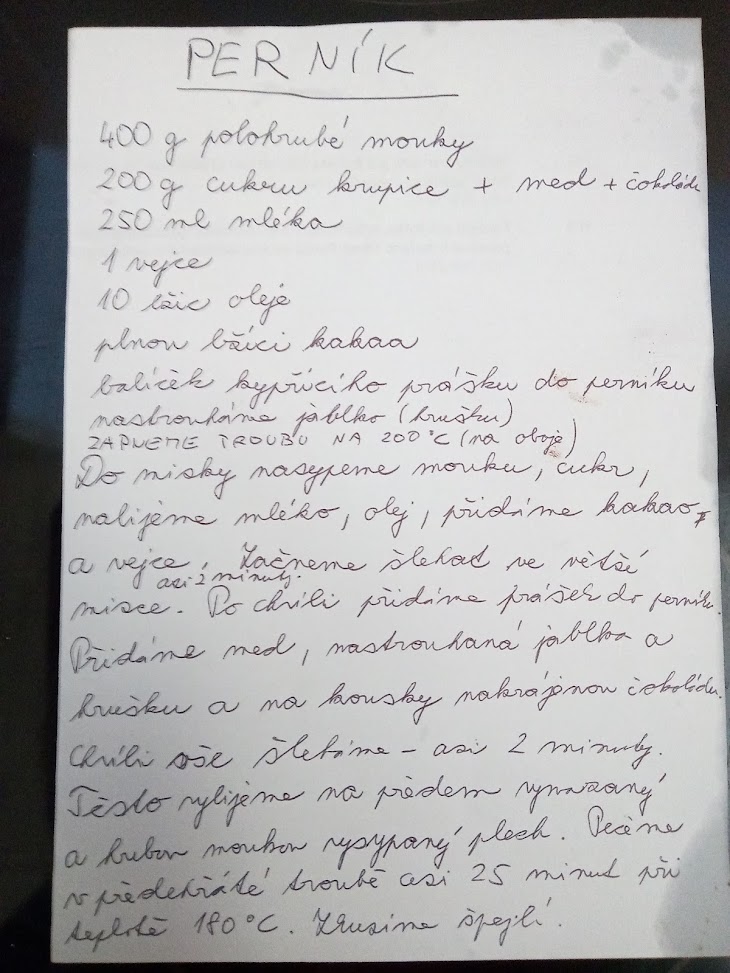 PERNÍK
400 g polohrubé mouky
200 g cukru krupice + med + čokoládu
250 ml mléka
1 vejce
10 lžic oleje
plnou lžíci kakaa
balíček kypřícího prášku do perníku
nastrouháme jablko (hrušku)
ZAPNEME TROUBU NA 200°C (na oboje)
Do misky nasypeme mouku, cukr,
nalijeme mléko, olej, přidáme kakao
a vejce. Začneme šlehat ve větší
asi 2 minuty.
misce. Po chvíli přidáme prášek do perníku.
Přidáme med, nastrouhaná jablka a
hrušku a na kousky nakrájenou čokoládu.
Chvíli vše šleháme - asi 2 minuty.
Těsto vylijeme na předem vymazaný
a hrubou moukou vysypaný plech. Pečeme
v předehřáté troubě asi 25 minut při
teplotě 180°C. Zkusíme špejlí.